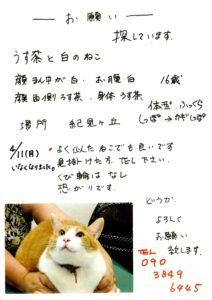 お願い
探しています.
うす茶と白のねこ
顔まん中が白. お腹白 16歳
顔両側うす茶. 身体うす茶
体型ふっくら
しっぽ→カギしっぽ
場所 紀見ヶ丘
4/11(月)
いなくなりました.
よく似たねこでも良いです
見掛けた方TEL下さい.
くび輪はなし
恐がりです.
どうか
よろしく
お願い
致します.
TEL
090
3849
6445